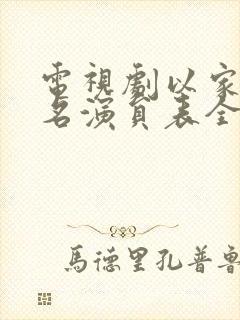 電視劇以家
名演員表全
馬德里孔普魯